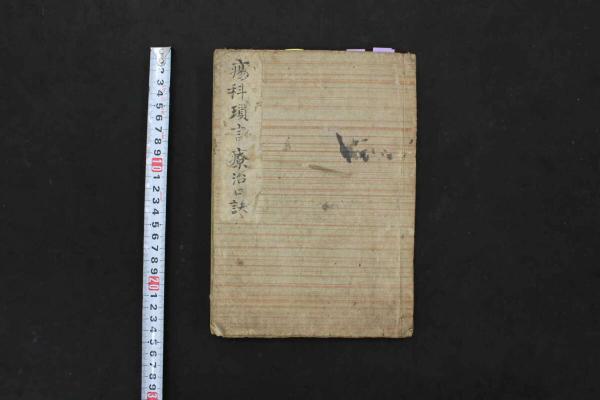 瘍科瑣言 療治口訣
2 3 4 5 6 7 8 9 10 1 2 3 4 5 6 7 8 9 20 1 2 3 4 5 6 7 8 9